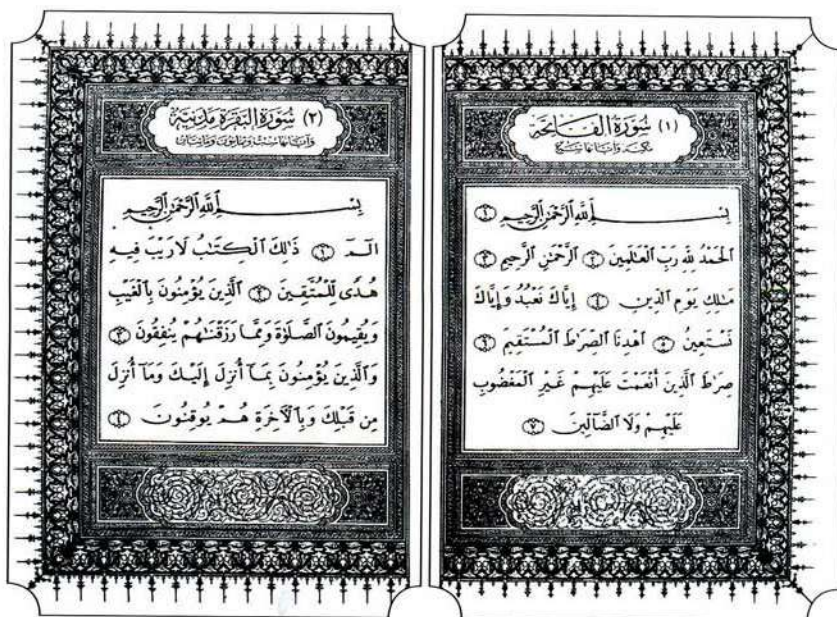 (١) سُورَةُ الْفَاتِحَةِ
مكية وآياتها سبع
بِسْمِ اللَّهِ الرَّحْمَٰنِ الرَّحِيمِ ۝١
الْحَمْدُ لِلَّهِ رَبِّ الْعَالَمِينَ ۝٢ الرَّحْمَٰنِ الرَّحِيمِ ۝٣
مَالِكِ يَوْمِ الدِّينِ ۝٤ إِيَّاكَ نَعْبُدُ وَإِيَّاكَ
نَسْتَعِينُ ۝٥ اهْدِنَا الصِّرَاطَ الْمُسْتَقِيمَ ۝٦
صِرَاطَ الَّذِينَ أَنْعَمْتَ عَلَيْهِمْ غَيْرِ الْمَغْضُوبِ
عَلَيْهِمْ وَلَا الضَّالِّينَ ۝٧
(٢) سُورَةُ الْبَقَرَةِ مَدَنِيَّة
وآياتها ست وثمانون ومائتان
بِسْمِ اللَّهِ الرَّحْمَٰنِ الرَّحِيمِ
الٓمٓ ۝١ ذَٰلِكَ الْكِتَابُ لَا رَيْبَ فِيهِ
هُدًى لِّلْمُتَّقِينَ ۝٢ الَّذِينَ يُؤْمِنُونَ بِالْغَيْبِ
وَيُقِيمُونَ الصَّلَاةَ وَمِمَّا رَزَقْنَاهُمْ يُنفِقُونَ ۝٣
وَالَّذِينَ يُؤْمِنُونَ بِمَا أُنزِلَ إِلَيْكَ وَمَا أُنزِلَ
مِن قَبْلِكَ وَبِالْآخِرَةِ هُمْ يُوقِنُونَ ۝٤